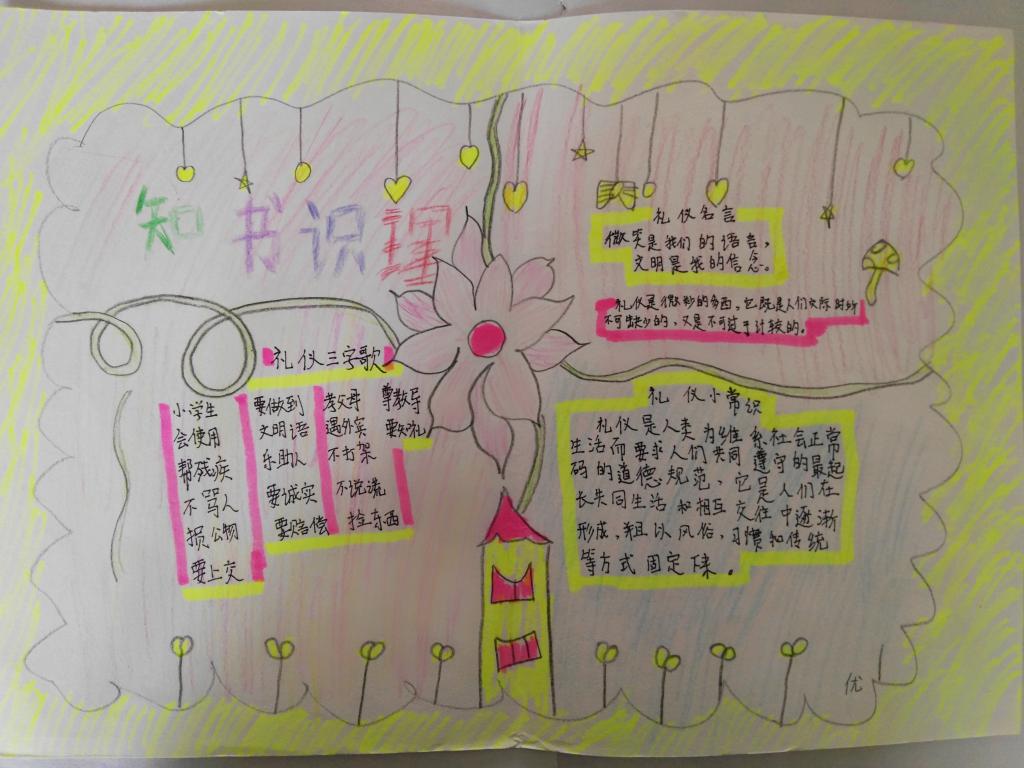 知书识理
礼仪三字歌
小学生 要做到 孝父母 尊教导
会使用 文明语 遇外宾 要知礼
帮残疾 乐助人 不打架
不骂人 要诚实 不说谎
损公物 要赔偿 捡东西
要上交
礼仪名言
微笑是我们的语言，
文明是我的信念。
礼仪是微妙的东西，它既是人们交际时所
不可缺少的，又是不可过于计较的。
礼仪小常识
礼仪是人类为维系社会正常
生活而要求人们共同遵守的最起
码的道德规范，它是人们在
长失同生活和相互交往中逐渐
形成，并且以风俗，习惯和传统
等方式固定下来。
优